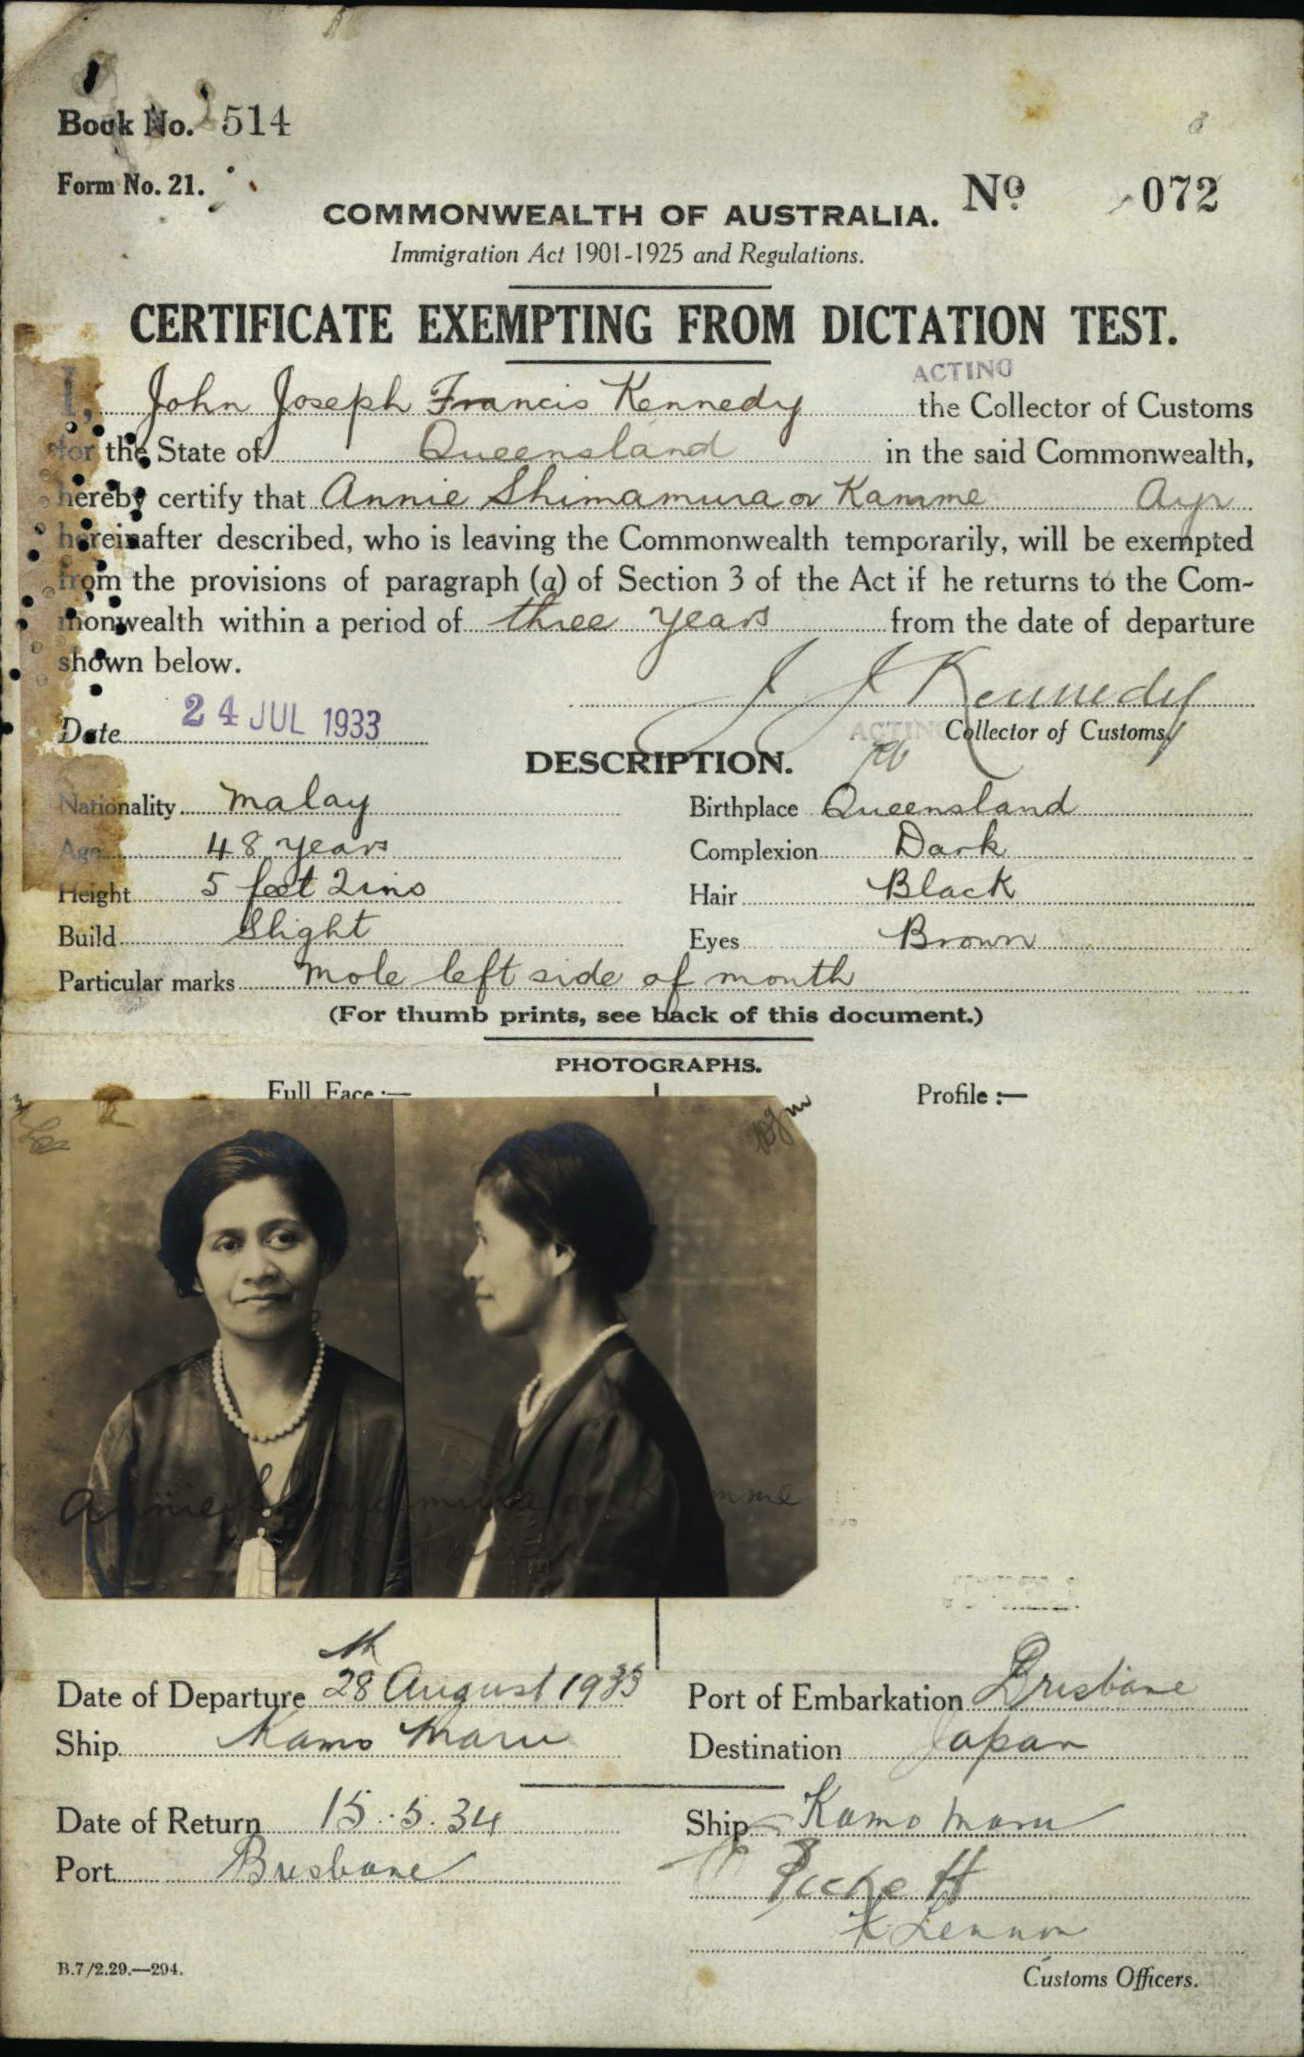 Book No. 514
Form No. 21.
No. 072
COMMONWEALTH OF AUSTRALIA.
Immigration Act 1901-1925 and Regulations.
CERTIFICATE EXEMPTING FROM DICTATION TEST.
ACTING
I, John Joseph Francis Kennedy the Collector of Customs
for the State of Queensland in the said Commonwealth,
hereby certify that Annie Shimamura or Kamme Ayr
hereinafter described, who is leaving the Commonwealth temporarily, will be exempted
from the provisions of paragraph (a) of Section 3 of the Act if he returns to the Com-
monwealth within a period of three years from the date of departure
shown below.
J J Kennedy
Date 24 JUL 1933
ACTING Collector of Customs.
DESCRIPTION.
Nationality Malay Birthplace Queensland
Age 48 years Complexion Dark
Height 5 feet 2 ins Hair Black
Build Slight Eyes Brown
Particular marks Mole left side of mouth
(For thumb prints, see back of this document.)
PHOTOGRAPHS.
Full Face :— Profile :—
Annie Shimamura or Kamme
Date of Departure 28th August 1933 Port of Embarkation Brisbane
Ship Kamo Maru Destination Japan
Date of Return 15.5.34 Ship Kamo Maru
Port Brisbane
Lennon
B.7/2.29.—294.
Customs Officers.